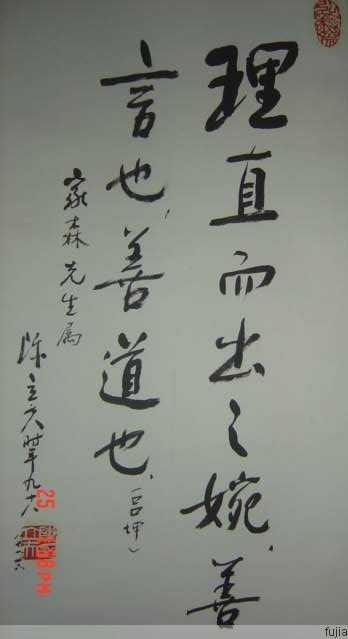 理直而出之婉，善
言也，善道也。（吕坤）
家森先生属
陈立夫时年九十八
25
98 PM
fujia